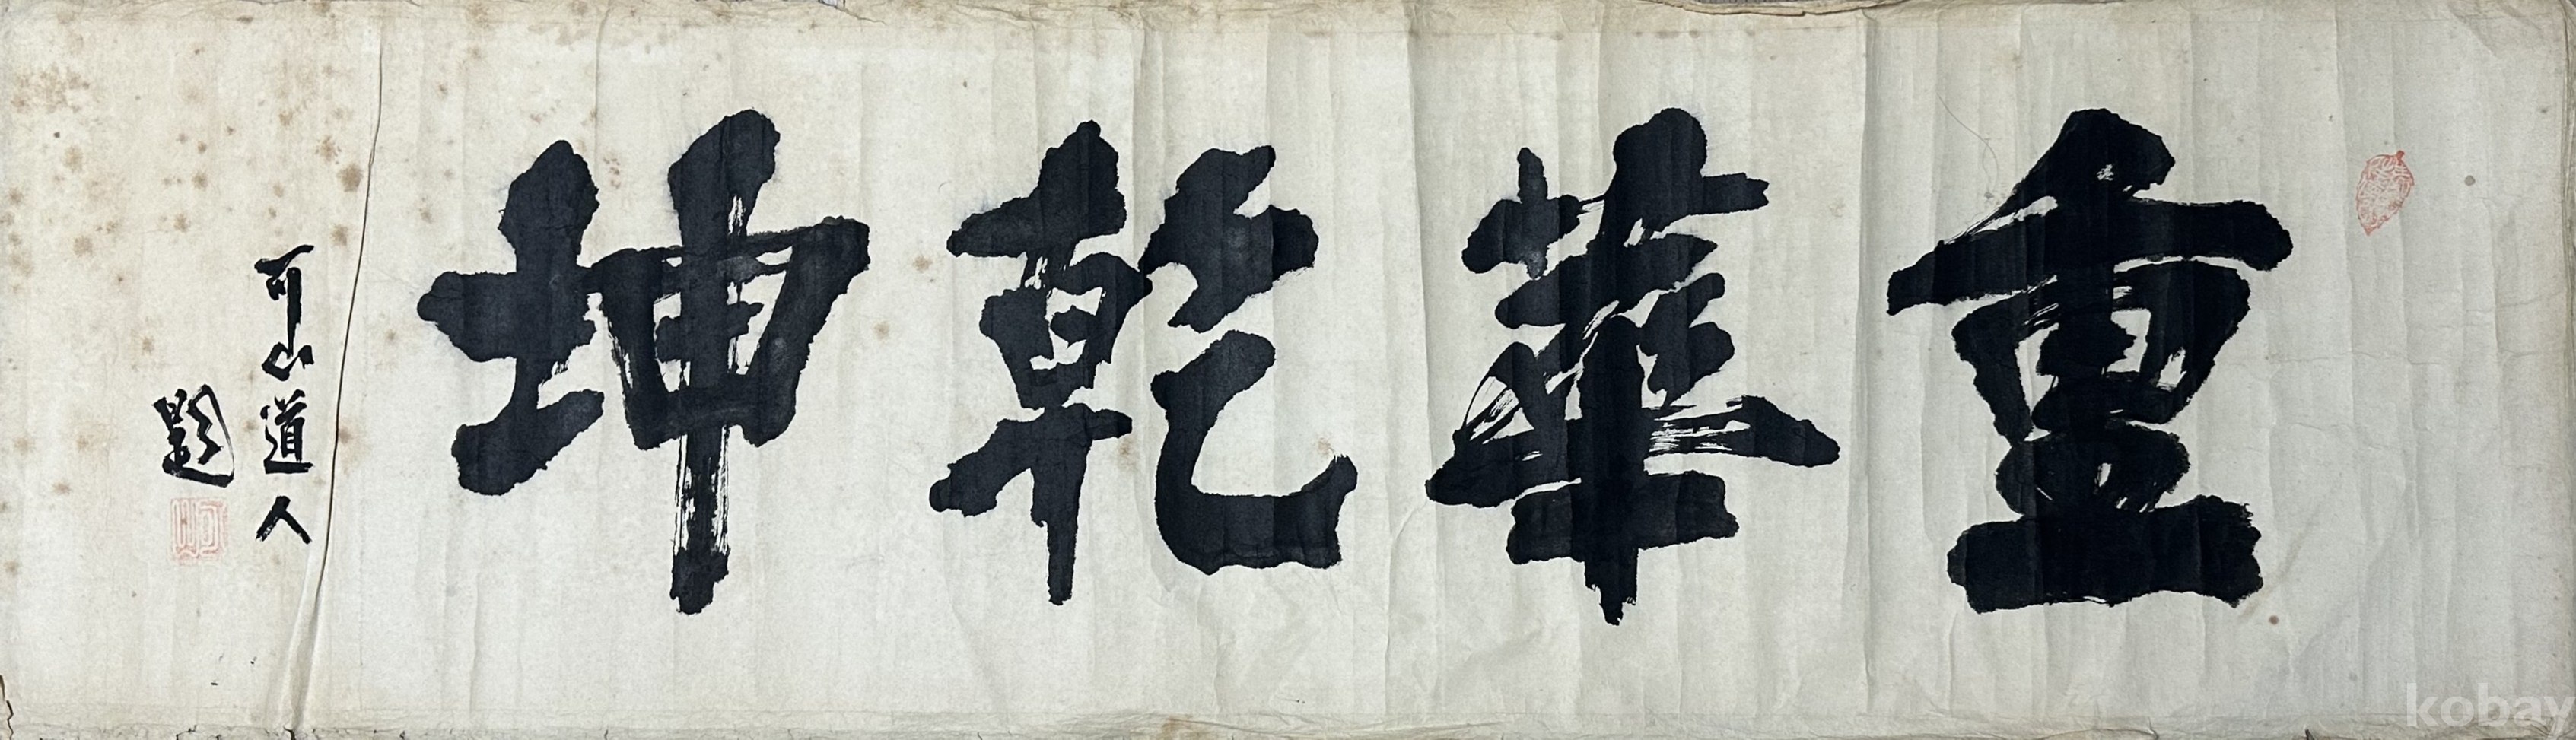 重華乾坤
可山道人
題
kobay